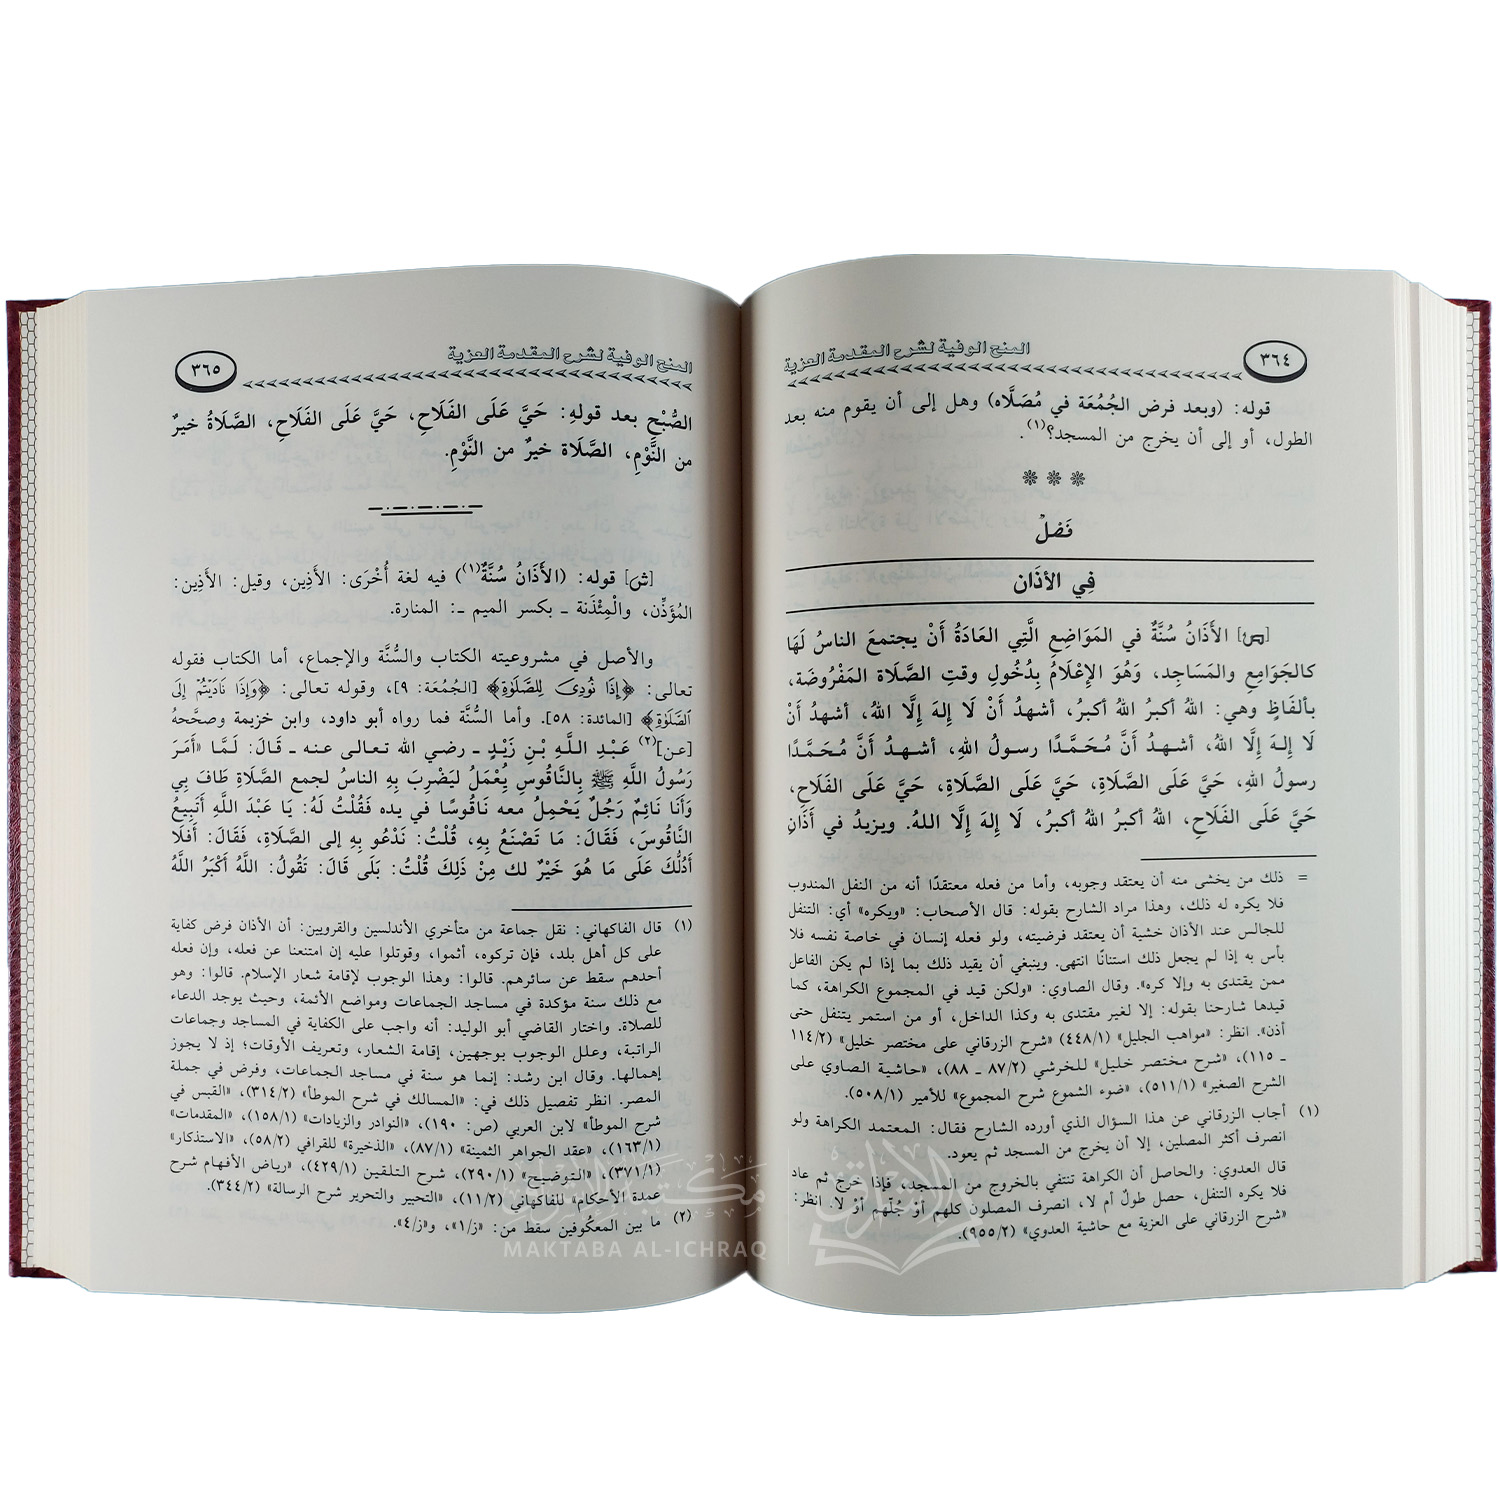 المنح الوفية لشرح المقدمة العزية
٣٦٤
قوله: (وبعد فرض الجُمُعَة في مُصَلَّاه) وهل إلى أن يقوم منه بعد
الطول، أو إلى أن يخرج من المسجد؟(١).
❊ ❊ ❊
فَصْلٌ
فِي الأَذَان
[ص] الأَذَانُ سُنَّةٌ في المَوَاضِعِ الَّتِي العَادَةُ أَنْ يجتمعَ الناسُ لَهَا
كالجَوَامِعِ والمَسَاجِد، وَهُوَ الإِعْلَامُ بِدُخُولِ وقتِ الصَّلَاة المَفْرُوضَة،
بألفَاظٍ وهي: اللهُ أكبرُ اللهُ أكبرُ، أشهدُ أَنْ لَا إِلهَ إِلَّا اللهُ، أشهدُ أَنْ
لَا إِلهَ إِلَّا اللهُ، أشهدُ أَنَّ مُحَمَّدًا رسولُ اللهِ، أشهدُ أَنَّ مُحَمَّدًا
رسولُ اللهِ، حَيَّ عَلَى الصَّلَاةِ، حَيَّ عَلَى الصَّلَاةِ، حَيَّ عَلَى الفَلَاحِ،
حَيَّ عَلَى الفَلَاحِ، اللهُ أكبرُ اللهُ أكبرُ، لَا إِلهَ إِلَّا اللهُ. ويزيدُ في أَذَانِ
= ذلك من يخشى منه أن يعتقد وجوبه، وأما من فعله معتقدًا أنه من النفل المندوب
فلا يكره له ذلك، وهذا مراد الشارح بقوله: قال الأصحاب: «ويكره» أي: التنفل
للجالس عند الأذان خشية أن يعتقد فرضيته، ولو فعله إنسان في خاصة نفسه فلا
بأس به إذا لم يجعل ذلك استنانًا انتهى. وينبغي أن يقيد ذلك بما إذا لم يكن الفاعل
ممن يقتدى به وإلا كره». وقال الصاوي: «ولكن قيد في المجموع الكراهة، كما
قيدها شارحنا بقوله: إلا لغير مقتدى به وكذا الداخل، أو من استمر يتنفل حتى
أذن». انظر: «مواهب الجليل» (٤٤٨/١) «شرح الزرقاني على مختصر خليل» (١١٤/٢
ـ ١١٥)، «شرح مختصر خليل» للخرشي (٨٧/٢ ـ ٨٨)، «حاشية الصاوي على
الشرح الصغير» (٥١١/١)، «ضوء الشموع شرح المجموع» للأمير (٥٠٨/١).
(١) أجاب الزرقاني عن هذا السؤال الذي أورده الشارح فقال: المعتمد الكراهة ولو
انصرف أكثر المصلين، إلا أن يخرج من المسجد ثم يعود.
قال العدوي: والحاصل أن الكراهة تنتفي بالخروج من المسجد، فإذا خرج ثم عاد
فلا يكره التنفل، حصل طولٌ أم لا، انصرف المصلون كلهم أوْ جُلّهم أوْ لا. انظر:
«شرح الزرقاني على العزية مع حاشية العدوي» (٩٥٥/٢).
المنح الوفية لشرح المقدمة العزية
٣٦٥
الصُّبْحِ بعد قولهِ: حَيَّ عَلَى الفَلَاحِ، حَيَّ عَلَى الفَلَاحِ، الصَّلَاةُ خيرٌ
من النَّوْمِ، الصَّلَاة خيرٌ من النَّوْمِ.
[ش] قوله: (الأَذَانُ سُنَّةٌ(١)) فيه لغة أُخْرَى: الأَذِين، وقيل: الأَذِين:
المُؤَذِّن، والْمِئْذَنة ـ بكسر الميم ـ: المنارة.
والأصل في مشروعيته الكتاب والسُّنَّة والإجماع، أما الكتاب فقوله
تعالى: ﴿إِذَا نُودِيَ لِلصَّلَوٰةِ﴾ [الجُمُعَة: ٩]، وقوله تعالى: ﴿وَإِذَا نَادَيْتُمْ إِلَى
الصَّلَوٰةِ﴾ [المائدة: ٥٨]. وأما السُّنَّة فما رواه أبو داود، وابن خزيمة وصحَّحهُ
[عن](٢) عَبْدِ اللَّهِ بْنِ زَيْدٍ ـ رضي الله تعالى عنه ـ قَالَ: لَمَّا «أَمَرَ
رَسُولُ اللَّهِ ﷺ بِالنَّاقُوسِ يُعْمَلُ لِيَضْرِبَ بِهِ الناسُ لجمع الصَّلَاةِ طَافَ بِي
وَأَنَا نَائِمٌ رَجُلٌ يَحْمِلُ معه نَاقُوسًا في يده فَقُلْتُ لَهُ: يَا عَبْدَ اللَّهِ أَتَبِيعُ
النَّاقُوسَ، فَقَالَ: مَا تَصْنَعُ بِهِ، قُلْتُ: نَدْعُو بِهِ إلى الصَّلَاةِ، فَقَالَ: أَفَلَا
أَدُلُّكَ عَلَى مَا هُوَ خَيْرٌ لك مِنْ ذَلِكَ قُلْتُ: بَلَى قَالَ: تَقُولُ: اللَّهُ أَكْبَرُ اللَّهُ
(١) قال الفاكهاني: نقل جماعة من متأخري الأندلسين والقرويين: أن الأذان فرض كفاية
على كل أهل بلد، فإن تركوه، أثموا، وقوتلوا عليه إن امتنعنا عن فعله، وإن فعله
أحدهم سقط عن سائرهم. قالوا: وهذا الوجوب لإقامة شعار الإسلام. قالوا: وهو
مع ذلك سنة مؤكدة في مساجد الجماعات ومواضع الأئمة، وحيث يوجد الدعاء
للصلاة. واختار القاضي أبو الوليد: أنه واجب على الكفاية في المساجد وجماعات
الراتبة، وعلل الوجوب بوجهين، إقامة الشعار، وتعريف الأوقات؛ إذ لا يجوز
إهمالها. وقال ابن رشد: إنما هو سنة في مساجد الجماعات، وفرض في جملة
المصر. انظر تفصيل ذلك في: «المسالك في شرح الموطأ» (٣١٤/٢)، «القبس في
شرح الموطأ» لابن العربي (ص: ١٩٠)، «النوادر والزيادات» (١٥٨/١)، «المقدمات»
(١٦٣/١)، «عقد الجواهر الثمينة» (٨٧/١)، «الذخيرة» للقرافي (٥٨/٢)، «الاستذكار»
(٣٧١/١)، «التوضيح» (٢٩٠/١)، شرح التلقين (٤٢٩/١)، «رياض الأفهام شرح
عمدة الأحكام» للفاكهاني (١١/٢)، «التحبير والتحرير شرح الرسالة» (٣٤٤/٢).
(٢) ما بين المعكُوفين سقط من: «ز/١»، و«ز/٤».
مكتبة الإشراق
MAKTABA AL-ICHRAQ
الإشراق